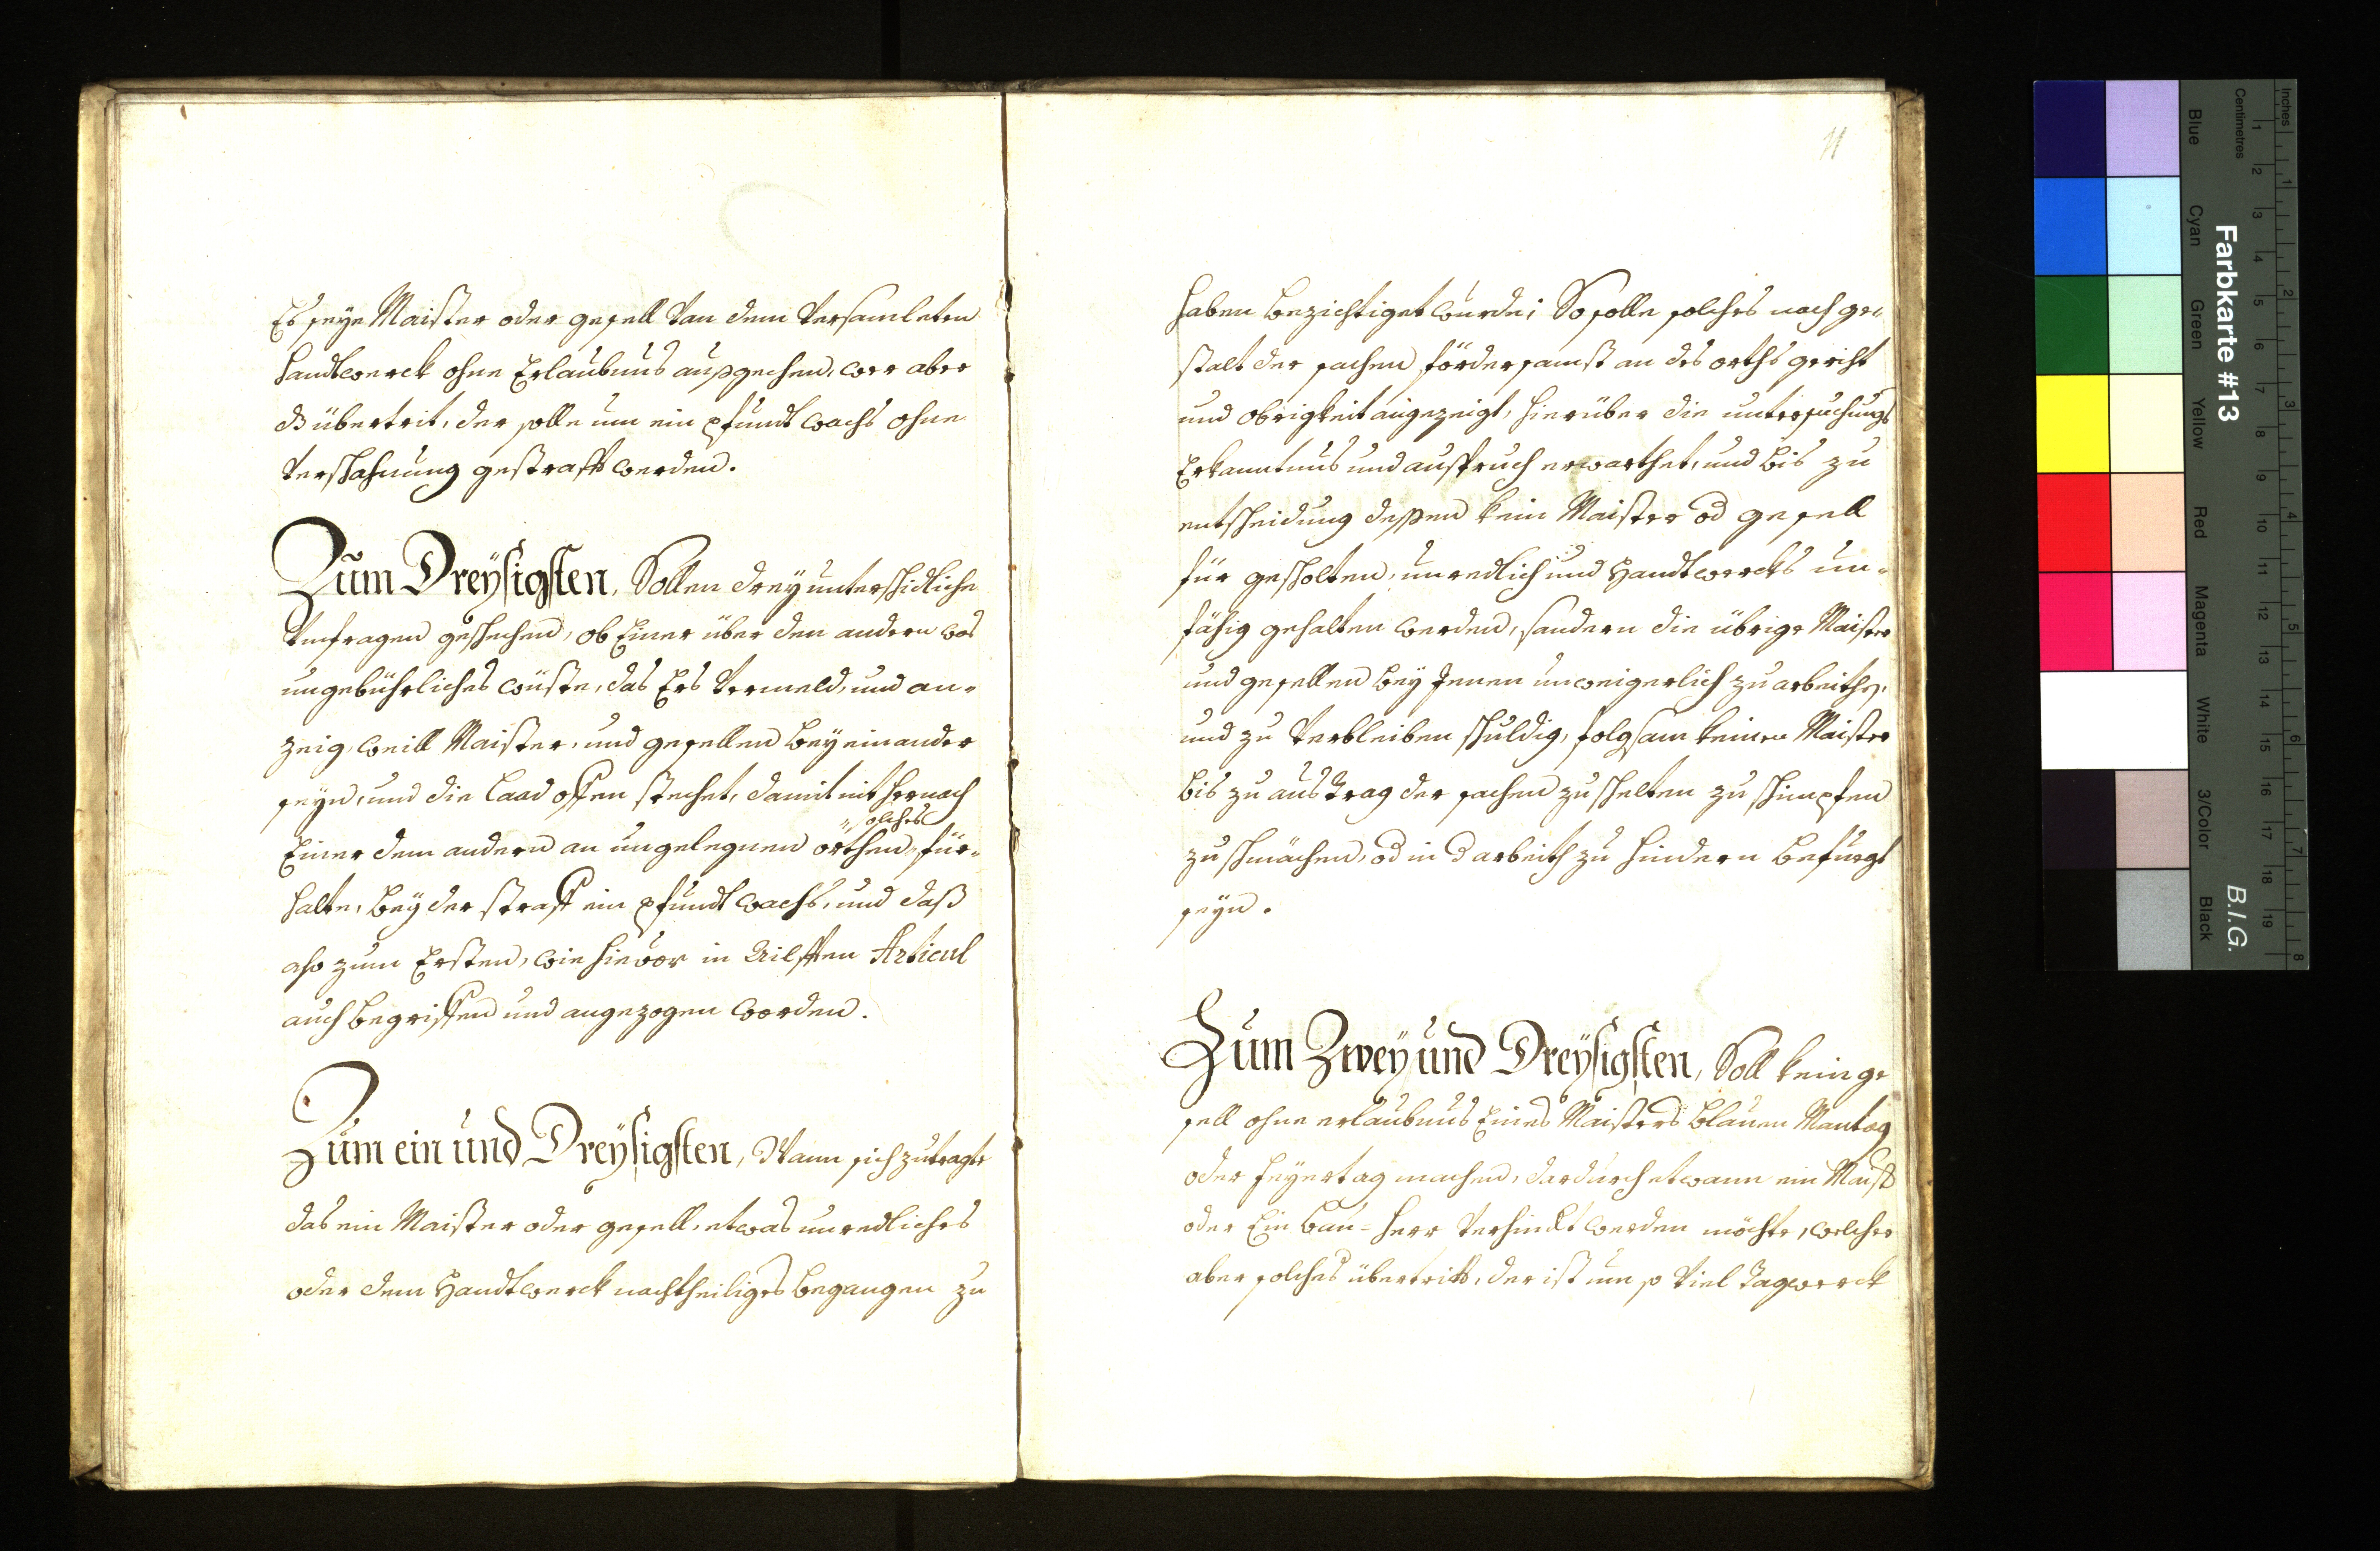 Es seye Maister oder gesell von dem versamleten
Handtwerck ohne Erlaubnus außgehen, wer aber
übertrit, der solle um ein pfundt wachs ohne
verschahnung gestrafft werden.
Zum Dreysigsten, Sollen drey unterschidliche
Umfragen geschehen, ob Einer über den andern was
ungebührliches wüste, das Ers vermeld, und an-
zeig, weill Maister, und gesellen bey einander
seyn, und die Laad offen stehet, damit nit hernach
solches
Einer dem andern an ungelegnen örthen für-
halte, bey der straff ein pfundt wachs, und daß
also zum Ersten, wie hievor in Ailfften Articul
auch begriffen und angezogen worden.
Zum ein und Dreysigsten, Wann sich zutragte
das ein Maister oder gesell, etwas unredliches
oder dem Handtwerck nachtheiliges begangen zu
11
haben bezichtiget wurde; So solle solches nach ge-
stalt der sachen fördersamst an des orths gericht
und Obrigkeit angezeigt, hierüber die untersuchungs
Erkanntnus und ausspruch erwarthet, und bis zu
entscheidung dessen kein Maister od gesell
für gescholten, unredlich und Handtwercks un-
fähig gehalten werden, sondern die übrige Maister
und gesellen bey Jenen unweigerlich zu arbeithen,
und zu verbleiben schuldig, folgsam keinen Maister
bis zu austrag der sachen zu schelten zu schimpfen
zu schmächen, od in d arbeith zu hindern befuegt
seyn.
Zum Zwey und Dreysigsten, Soll kein ge
sell ohne erlaubnus Eines Maisters blauen Montag
oder Feyertag machen, dardurch etwann ein Maist
oder Ein Bau-Herr verhindt werden möchte, welcher
aber solches übertritt, der ist um so viel Tagwerck
Farbkarte #13
B.I.G.
Inches
Centimetres
1 2 3 4 5 6 7 8 9 10 11 12 13 14 15 16 17 18 19
1 2 3 4 5 6 7 8
Blue Cyan Green Yellow Red Magenta White 3/Color Black